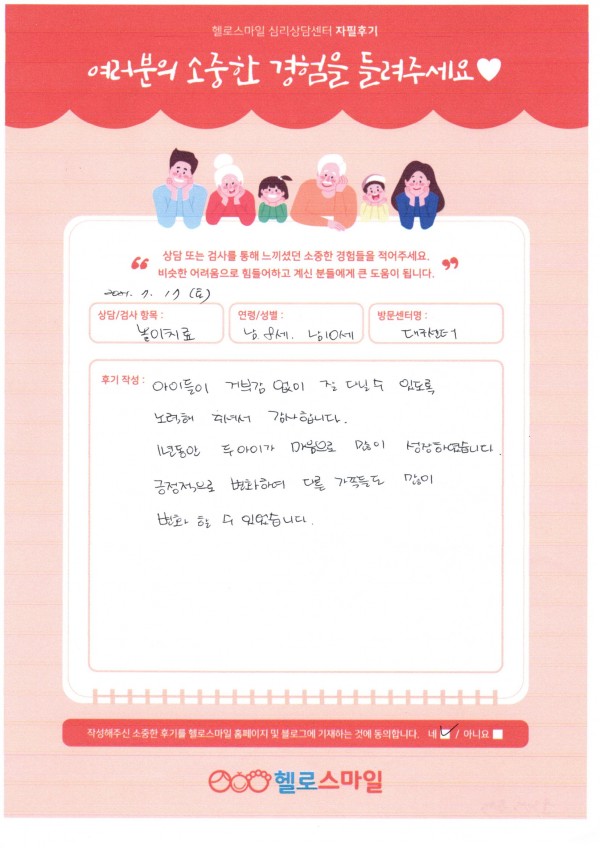 헬로스마일 심리상담센터 자필후기
여러분의 소중한 경험을 들려주세요
상담 또는 검사를 통해 느끼셨던 소중한 경험들을 적어주세요.
비슷한 어려움으로 힘들어하고 계신 분들에게 큰 도움이 됩니다.
2021. 7. 17 (토)
상담/검사 항목 : 놀이치료
연령/성별 : 남.8세. 남10세
방문센터명 : 대구센터
후기 작성 : 아이들이 거부감 없이 잘 다닐 수 있도록
노력해 주셔서 감사합니다.
1년동안 두 아이가 마음으로 많이 성장하였습니다.
긍정적으로 변화하여 다른 가족들도 많이
변화 할 수 있었습니다.
작성해주신 소중한 후기를 헬로스마일 홈페이지 및 블로그에 기재하는 것에 동의합니다. 네 / 아니요
헬로스마일